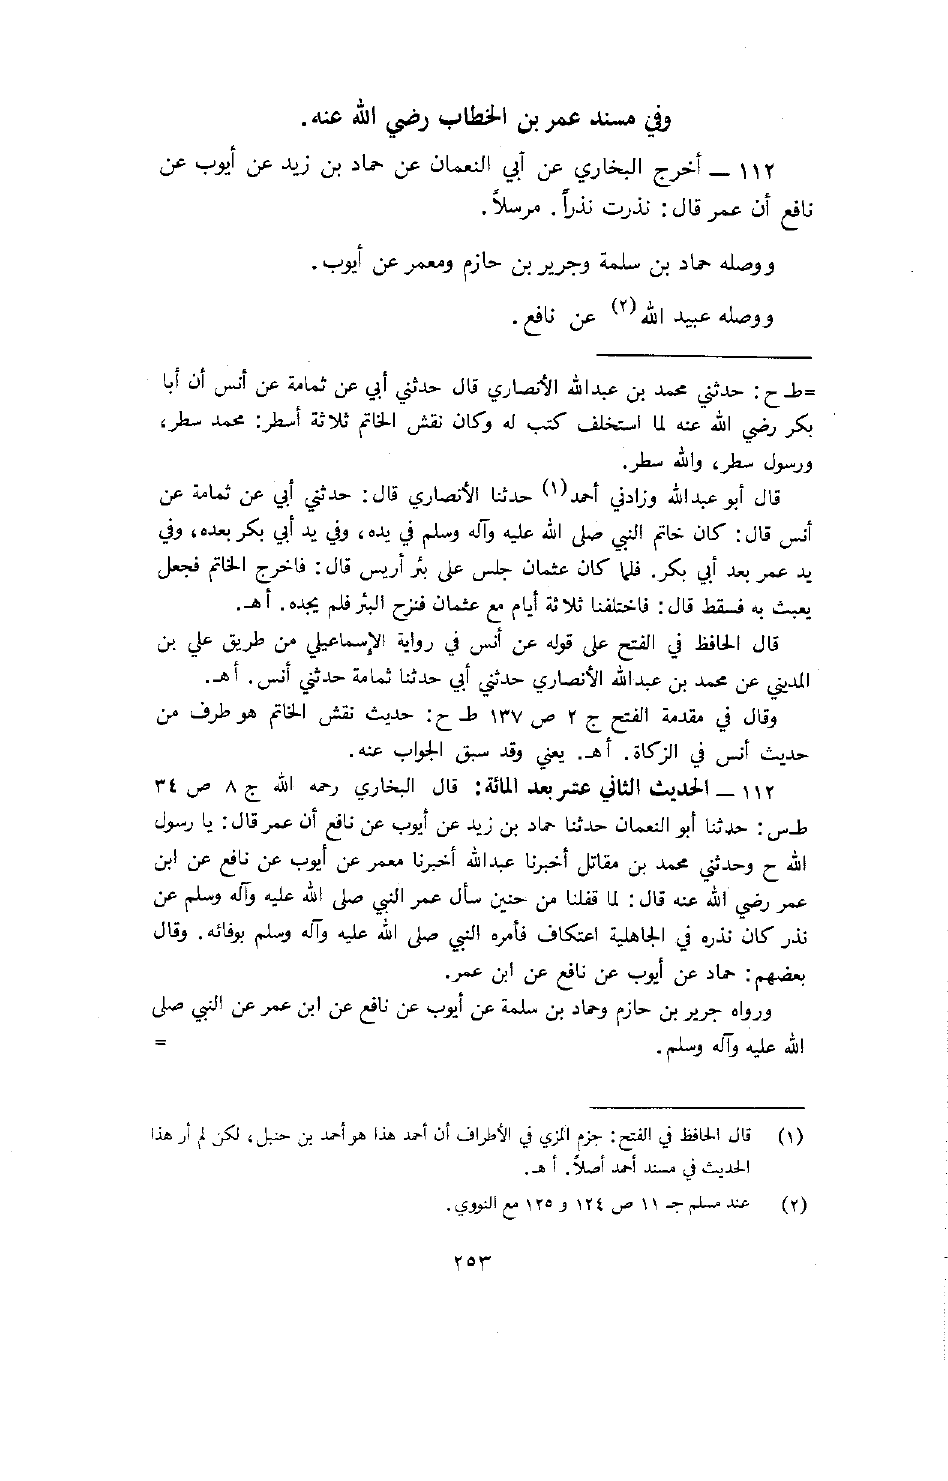 وفي مسند عمر بن الخطاب رضي الله عنه.
١١٢ ــ أخرج البخاري عن أبي النعمان عن حماد بن زيد عن أيوب عن
نافع أن عمر قال: نذرت نذراً. مرسلاً.
ووصله حماد بن سلمة وجرير بن حازم ومعمر عن أيوب.
ووصله عبيد الله(٢) عن نافع.
=طـ ح: حدثني محمد بن عبدالله الأنصاري قال حدثني أبي عن ثمامة عن أنس أن أبا
بكر رضي الله عنه لما استخلف كتب له وكان نقش الخاتم ثلاثة أسطر: محمد سطر،
ورسول سطر، والله سطر.
قال أبو عبدالله وزادني أحمد(١) حدثنا الأنصاري قال: حدثني أبي عن ثمامة عن
أنس قال: كان خاتم النبي صلى الله عليه وآله وسلم في يده، وفي يد أبي بكر بعده، وفي
يد عمر بعد أبي بكر. فلما كان عثمان جلس على بئر أريس قال: فاخرج الخاتم فجعل
يعبث به فسقط قال: فاختلفنا ثلاثة أيام مع عثمان فنزح البئر فلم يجده. أهـ.
قال الحافظ في الفتح على قوله عن أنس في رواية الإسماعيلي من طريق علي بن
المديني عن محمد بن عبدالله الأنصاري حدثني أبي حدثنا ثمامة حدثني أنس. أهـ.
وقال في مقدمة الفتح ج ٢ ص ١٣٧ طـ ح: حديث نقش الخاتم هو طرف من
حديث أنس في الزكاة. أهـ. يعني وقد سبق الجواب عنه.
١١٢ ــ الحديث الثاني عشر بعد المائة: قال البخاري رحمه الله ج ٨ ص ٣٤
طـس: حدثنا أبو النعمان حدثنا حماد بن زيد عن أيوب عن نافع أن عمر قال: يا رسول
الله ح وحدثني محمد بن مقاتل أخبرنا عبدالله أخبرنا معمر عن أيوب عن نافع عن ابن
عمر رضي الله عنه قال: لما قفلنا من حنين سأل عمر النبي صلى الله عليه وآله وسلم عن
نذر كان نذره في الجاهلية اعتكاف فأمره النبي صلى الله عليه وآله وسلم بوفائه. وقال
بعضهم: حماد عن أيوب عن نافع عن ابن عمر.
ورواه جرير بن حازم وحماد بن سلمة عن أيوب عن نافع عن ابن عمر عن النبي صلى
الله عليه وآله وسلم. =
(١) قال الحافظ في الفتح: جزم المزي في الأطراف أن أحمد هذا هو أحمد بن حنبل، لكن لم أر هذا
الحديث في مسند أحمد أصلاً. أ هـ.
(٢) عند مسلم جـ ١١ ص ١٢٤ و ١٢٥ مع النووي.
٢٥٣